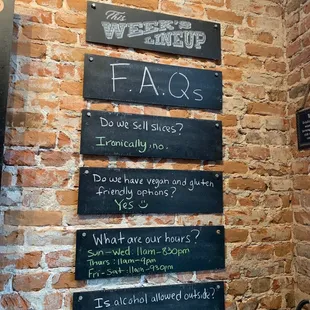 This
WEEK'S
LINEUP
F.A.Qs
Do we sell slices?
Ironically, no.
Do we have vegan and gluten
friendly options?
Yes
What are our hours?
Sun-Wed: 11am-830pm
Thurs: 11am-9pm
Fri-Sat: 11am-930pm
Is alcohol allowed outside?